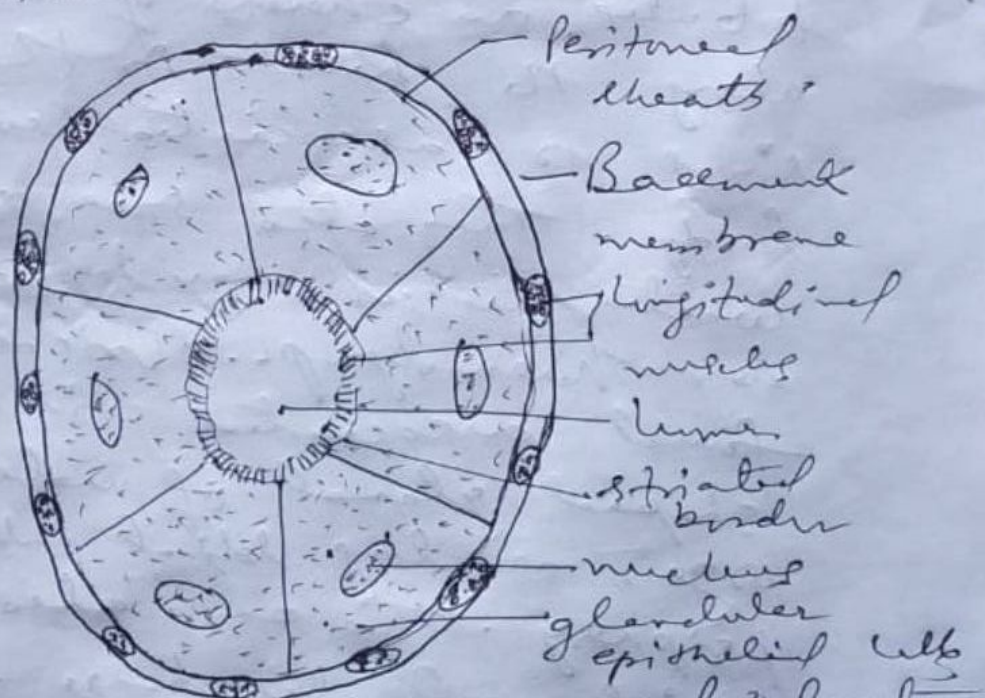 Peritoneal
sheath
Basement
membrane
Longitudinal
muscles
Lumen
striated
border
nucleus
glandular
epithelial cells